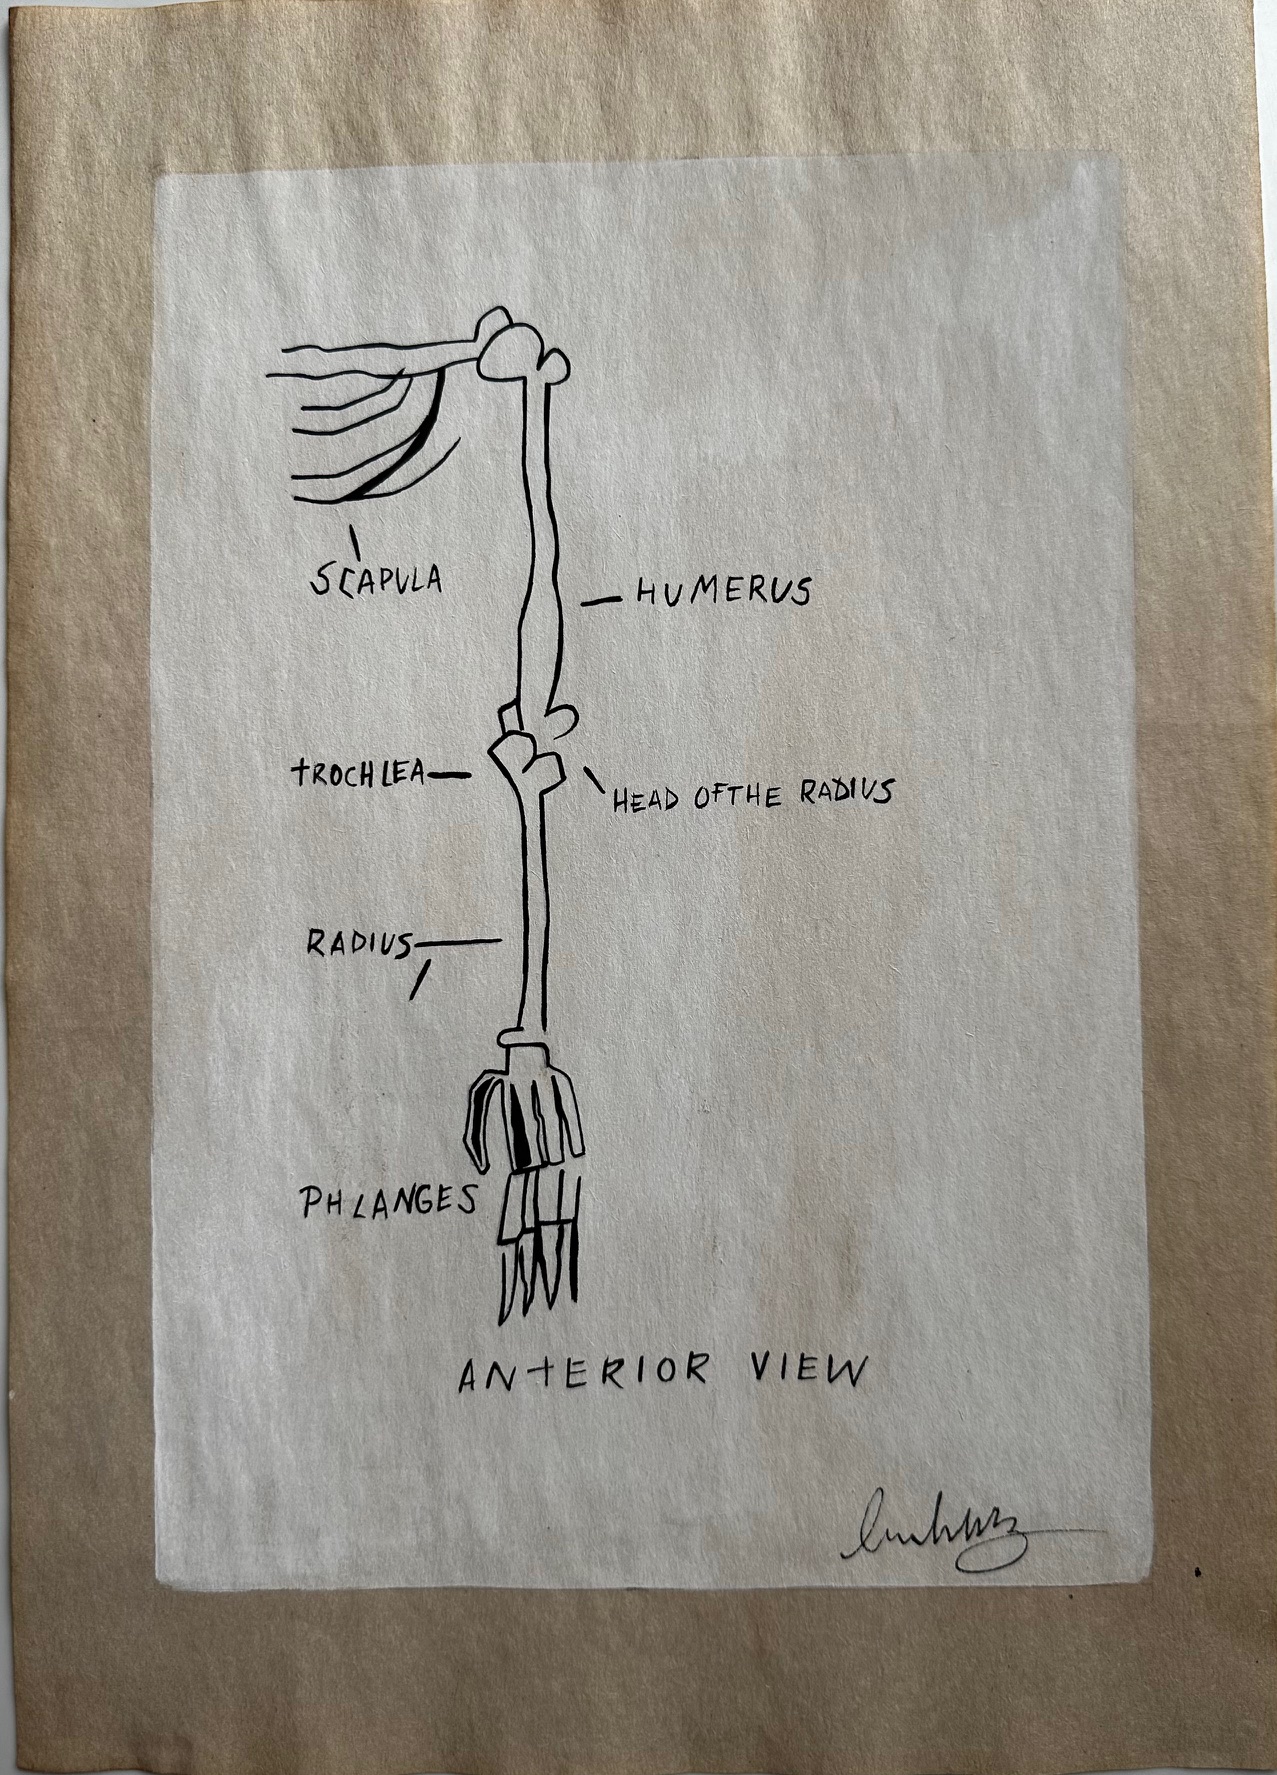 SCAPULA
HUMERUS
tROCHLEA
HEAD OF THE RADIUS
RADIUS
PHLANGES
ANtERIOR VIEW